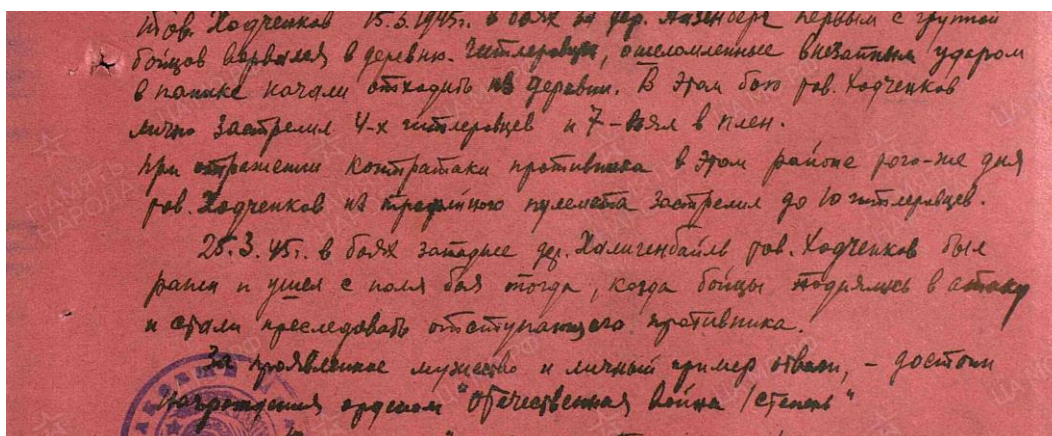 тов. Ходченков 15.3.1945г. в боях за дер. Лизенберг первым с группой
бойцов ворвался в деревню. Гитлеровцы, ошеломленные внезапным ударом
в панике начали отходить из деревни. В этом бою тов. Ходченков
лично застрелил 4-х гитлеровцев и 7-взял в плен.
При отражении контратаки противника в этом районе того-же дня
тов. Ходченков из трофейного пулемета застрелил до 10 гитлеровцев.
25.3.45г. в боях западнее дер. Халигенбайль тов. Ходченков был
ранен и ушел с поля боя тогда, когда бойцы поднялись в атаку
и стали преследовать отступающего противника.
За проявленное мужество и личный пример отваги, - достоин
награждения орденом "Отечественная война I степень"